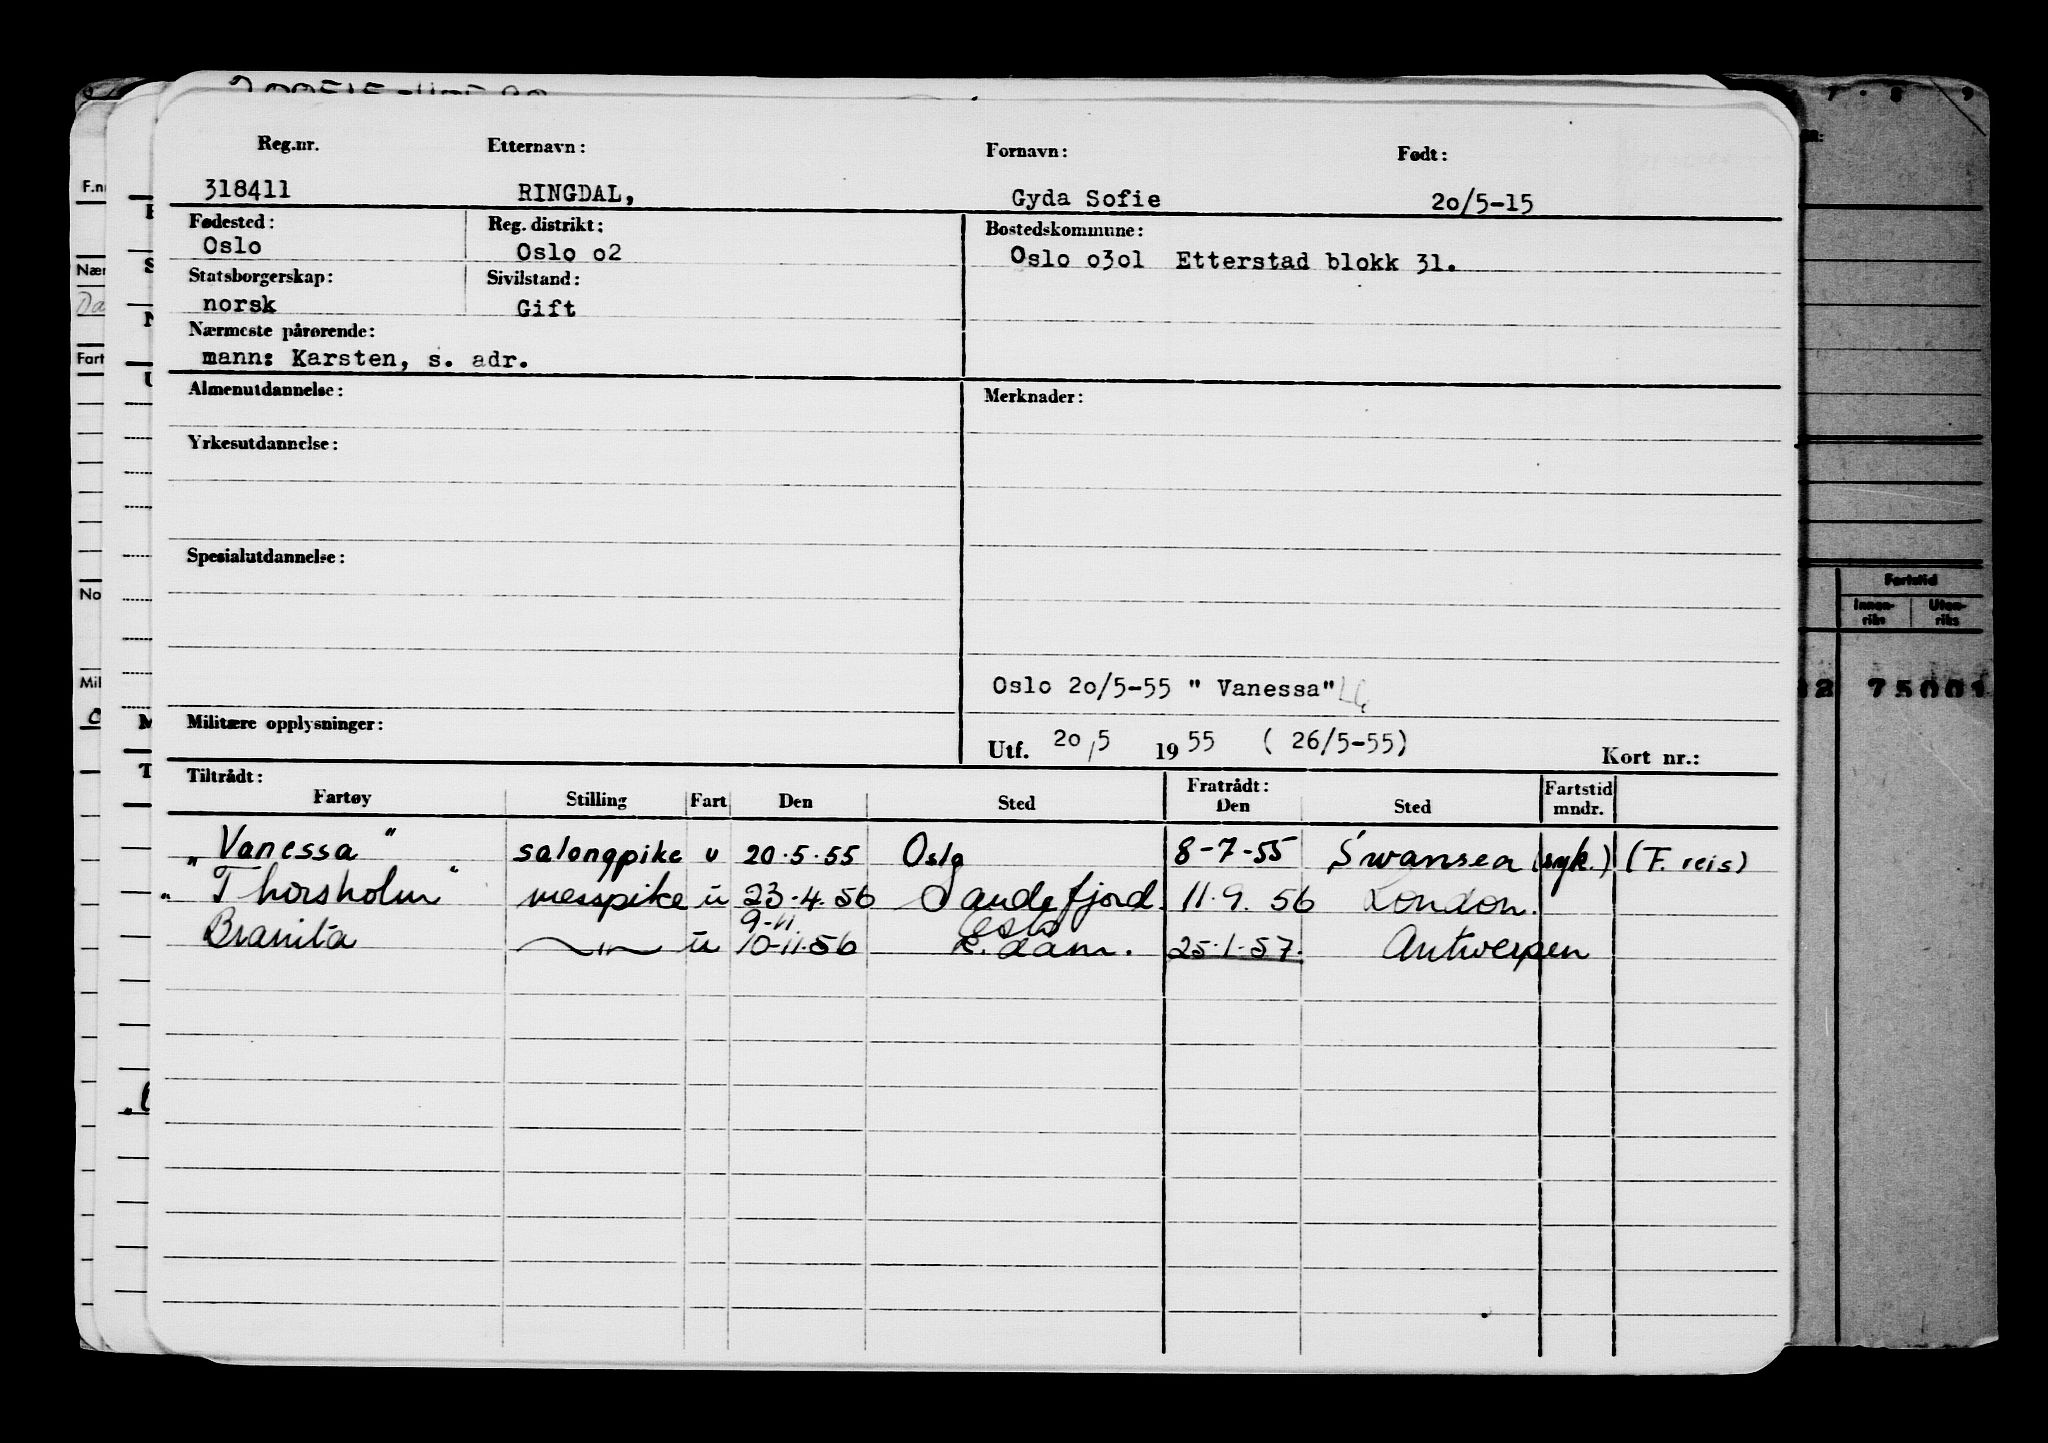 Reg.nr. Etternavn: Fornavn: Født:
318411 RINGDAL, Gyda Sofie 20/5-15
Fødested: Reg. distrikt: Bostedskommune:
Oslo Oslo o2 Oslo o3o1 Etterstad blokk 31.
Statsborgerskap: Sivilstand:
norsk Gift
Nærmeste pårørende:
mann: Karsten, s. adr.
Almenutdannelse: Merknader:
Yrkesutdannelse:
Spesialutdannelse:
Oslo 20/5-55 " Vanessa"
Militære opplysninger: Utf. 20/5 1955 ( 26/5-55) Kort nr.:
Tiltrådt: Fratrådt: Fartstid
Fartøy Stilling Fart Den Sted Den Sted mndr.
"Vanessa" salongpike u 20.5.55 Oslo 8-7-55 Swansea (syk.) (F. reis)
"Thorsholm" messpike u 23.4.56 Sandefjord. 11.9.56 London.
9-11 Oslo
Branita —"— u 10-11-56 R.dam. 25.1.57. Antwerpen
F.nr
Nær
Fart
No
Mil
Fartstid
Innen-riks Uten-riks
12 75001